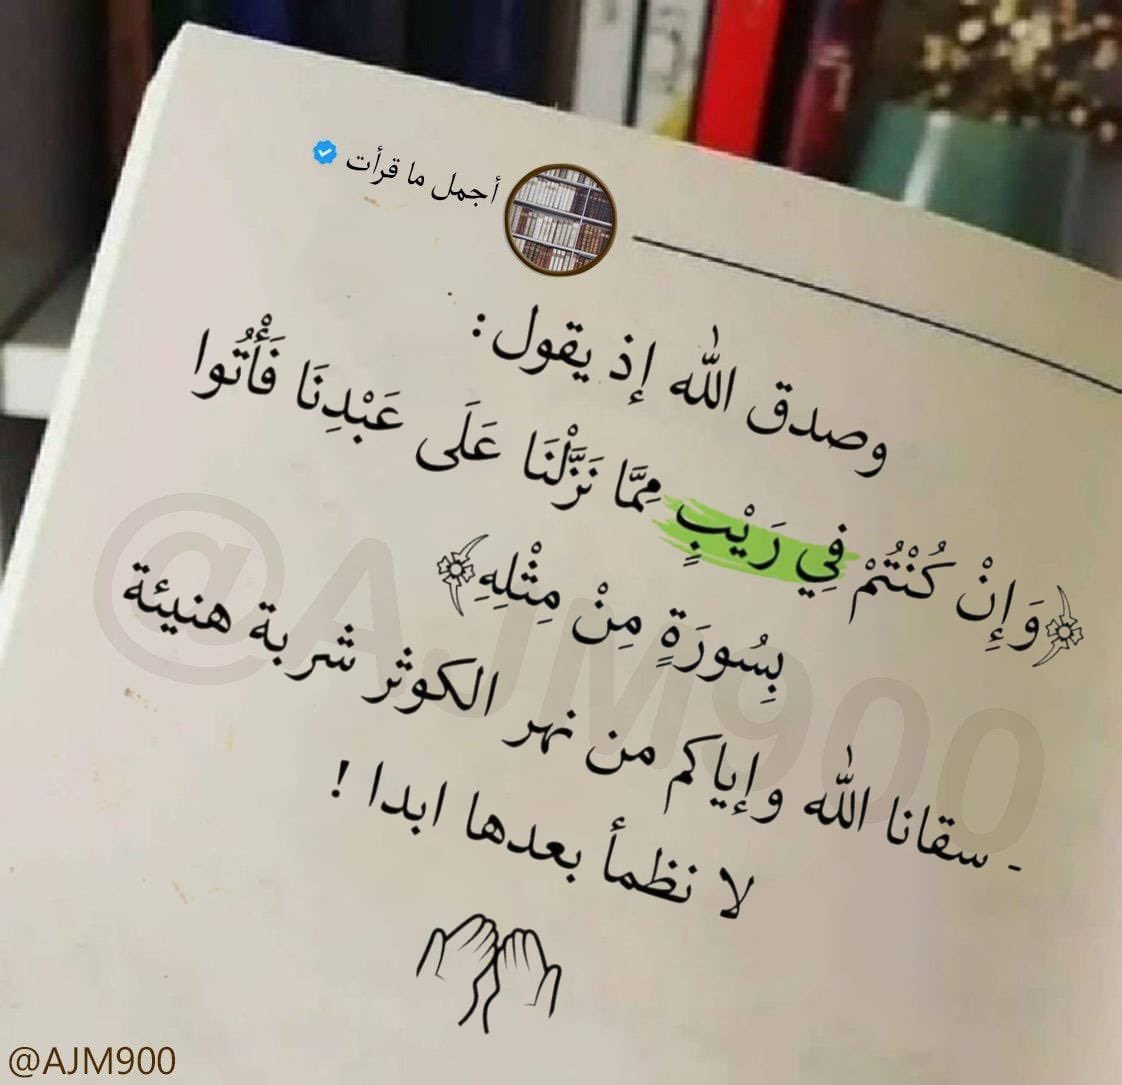 أجمل ما قرأت
وصدق الله إذ يقول:
﴿وَإِنْ كُنْتُمْ فِي رَيْبٍ مِمَّا نَزَّلْنَا عَلَى عَبْدِنَا فَأْتُوا
بِسُورَةٍ مِنْ مِثْلِهِ﴾
- سقانا الله وإياكم من نهر الكوثر شربة هنيئة
لا نظمأ بعدها ابدا !
@AJM900
@AJM900